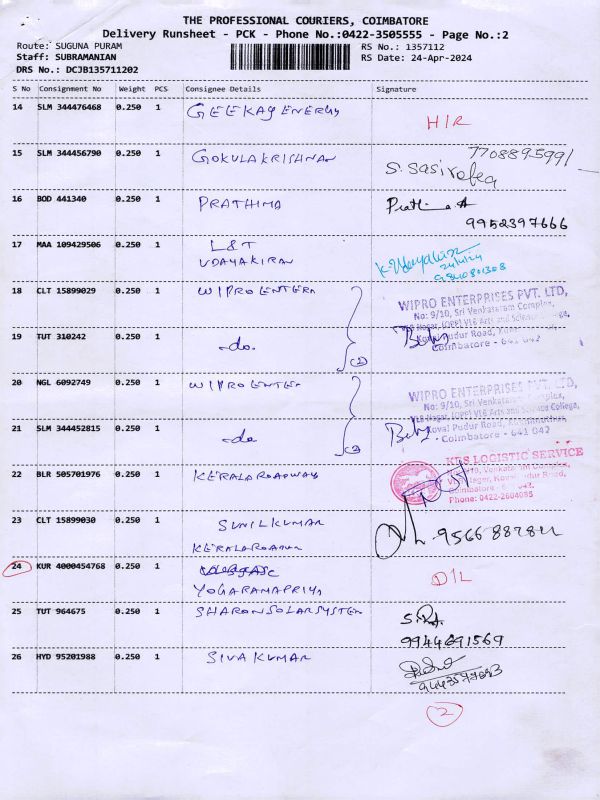 THE PROFESSIONAL COURIERS, COIMBATORE
Delivery Runsheet - PCK - Phone No.:0422-3505555 - Page No.:2
Route: SUGUNA PURAM
RS No.: 1357112
Staff: SUBRAMANIAN
RS Date: 24-Apr-2024
DRS No.: DCJB135711202
S No Consignment No Weight PCS Consignee Details Signature
14 SLM 344476468 0.250 1 GEEKAY ENERGY
15 SLM 344456790 0.250 1 GOKULAKRISHNAN 7708895991
S. Sasireka
16 BOD 441340 0.250 1 PRATHIMA
9952397666
17 MAA 109429506 0.250 1 L&T
UDAYAKIRAN
24/4/24
18 CLT 15899029 0.250 1 WIPRO ENTERN
WIPRO ENTERPRISES PVT. LTD,
No: 9/10, Sri Venkatesram Complex,
VLB Nagar, (OPP) VLB Arts and Science College,
Kovai Pudur Road,
Coimbatore - 641 042
19 TUT 310242 0.250 1 -do. (2)
20 NGL 6092749 0.250 1 WIPRO ENTER
WIPRO ENTERPRISES PVT. LTD,
No: 9/10, Sri Venkatesram Complex,
VLB Nagar, (OPP) VLB Arts and Science College,
Kovai Pudur Road, Kuniamuthur,
Coimbatore - 641 042
21 SLM 344452815 0.250 1 -do (2)
22 BLR 505701976 0.250 1 KERALA ROADWAY
KRS LOGISTIC SERVICE
Complex,
Road,
Coimbatore -
Phone: 0422-2604085
23 CLT 15899030 0.250 1 SUNILKUMAR
KERALA ROADWAY
24 KUR 4000454768 0.250 1
YOGARAMAPRIYA
D/L
25 TUT 964675 0.250 1 SHARON SOLAR SYSTEM
9944691569
26 HYD 95201988 0.250 1 SIVAKUMAR
2